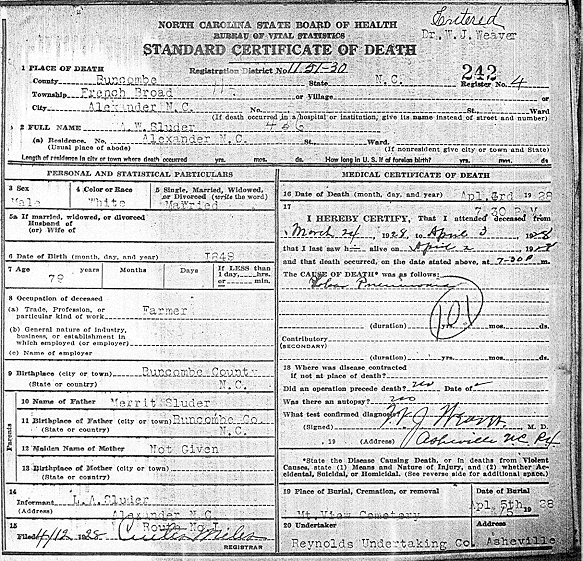 Entered
Dr. W. J. Weaver
NORTH CAROLINA STATE BOARD OF HEALTH
BUREAU OF VITAL STATISTICS
STANDARD CERTIFICATE OF DEATH
1 PLACE OF DEATH
Registration District No. 1151-30
242
County Buncombe State N.C. Register No. 4
Township French Broad or Village or
City Alexander N.C. No. St. Ward
(If death occurred in a hospital or institution, give its name instead of street and number)
2 FULL NAME W. Sluder
(a) Residence. No. Alexander N.C. St., Ward.
(Usual place of abode) (If nonresident give city or town and State)
Length of residence in city or town where death occurred yrs. mos. ds. How long in U. S. if of foreign birth? yrs. mos. ds.
PERSONAL AND STATISTICAL PARTICULARS
3 Sex 4 Color or Race 5 Single, Married, Widowed, or Divorced (write the word)
Male White Married
5a If married, widowed, or divorced
Husband of
(or) Wife of
6 Date of Birth (month, day, and year) 1849
7 Age years Months Days If LESS than
79 1 day, hrs.
or min.
8 Occupation of deceased
(a) Trade, Profession, or
particular kind of work Farmer
(b) General nature of industry,
business, or establishment in
which employed (or employer)
(c) Name of employer
9 Birthplace (city or town) Buncombe County
(State or country) N.C.
Parents
10 Name of Father Merrit Sluder
11 Birthplace of Father (city or town) Buncombe Co.
(State or country) N.C.
12 Maiden Name of Mother Not Given
13 Birthplace of Mother (city or town)
(State or country)
14
Informant L.A. Sluder
(Address) Alexander N.C.
Route No. 1
15
Filed 4/12 1928 Curtis Miles
REGISTRAR
MEDICAL CERTIFICATE OF DEATH
16 Date of Death (month, day, and year) Apl. 3rd 1928
17 7.30 P.M.
I HEREBY CERTIFY, That I attended deceased from
March 24, 1928, to April 3 1928
that I last saw h alive on April 2 1928
and that death occurred, on the date stated above, at 7-30 P m.
The CAUSE OF DEATH* was as follows:
Lobar Pneumonia
101
(duration) yrs. mos. ds.
Contributory
(SECONDARY)
(duration) yrs. mos. ds.
18 Where was disease contracted
if not at place of death?
Did an operation precede death? no Date of
Was there an autopsy? no
What test confirmed diagnosis?
(Signed) W J Weaver M. D.
, 19 (Address) Asheville N.C.
*State the Disease Causing Death, or in deaths from Violent
Causes, state (1) Means and Nature of Injury, and (2) whether Accidental, Suicidal, or Homicidal. (See reverse side for additional space.)
19 Place of Burial, Cremation, or removal Date of Burial
Mt. View Cemetery Apl. 5th 1928
20 Undertaker Address
Reynolds Undertaking Co. Asheville